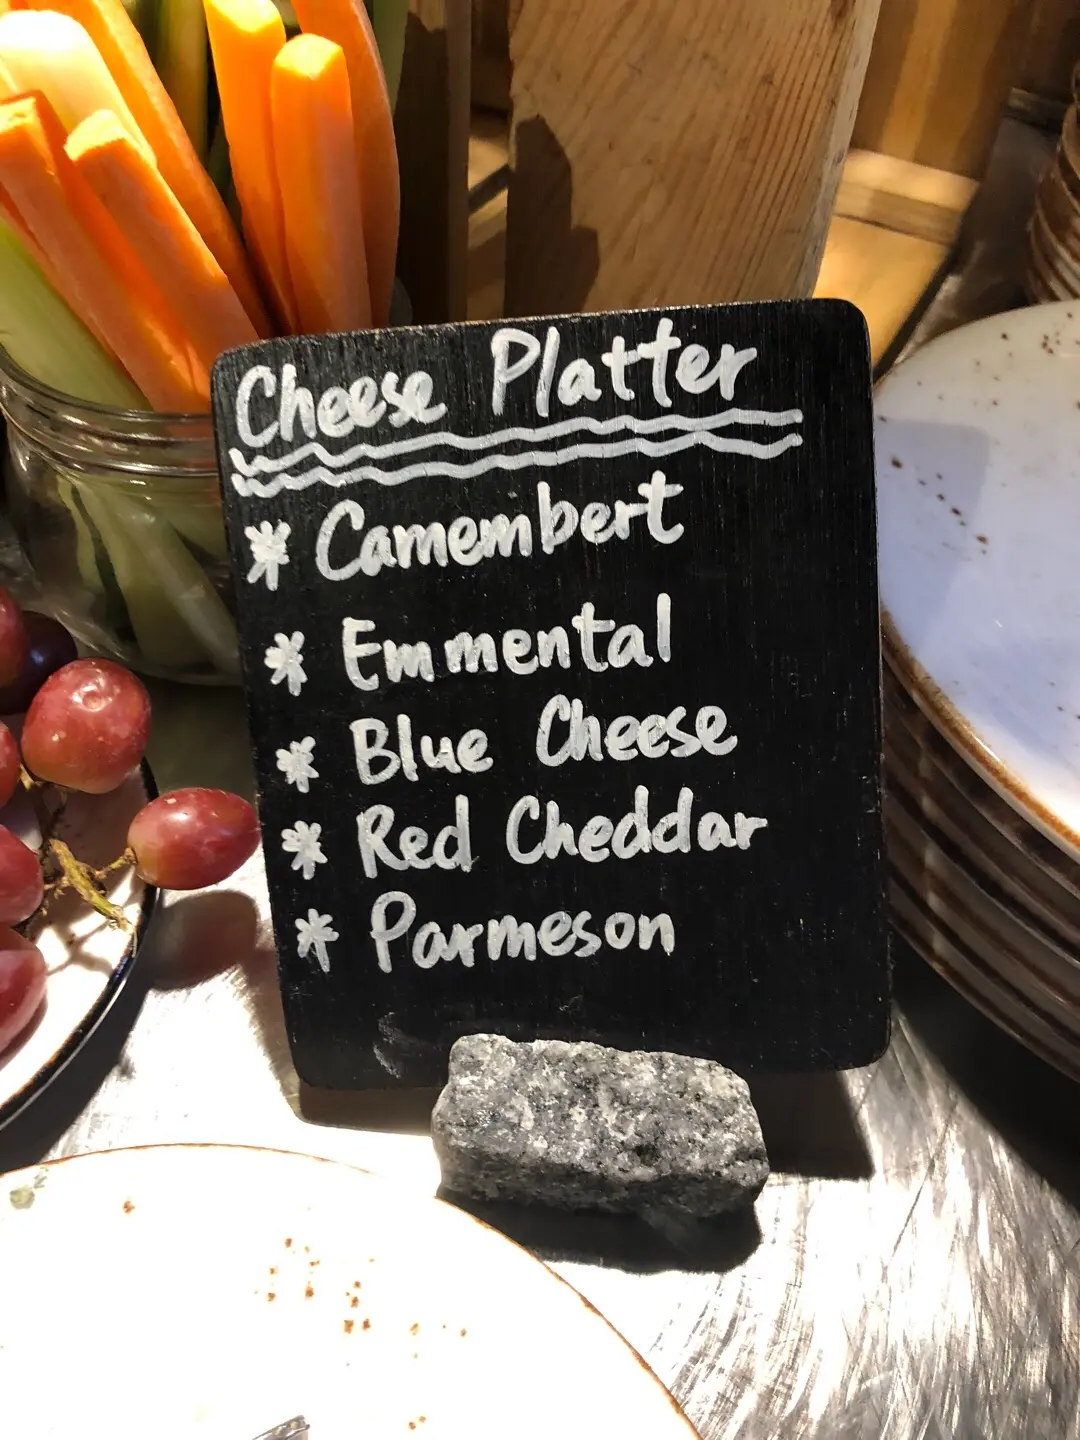 Cheese Platter
* Camembert
* Emmental
* Blue Cheese
* Red Cheddar
* Parmeson